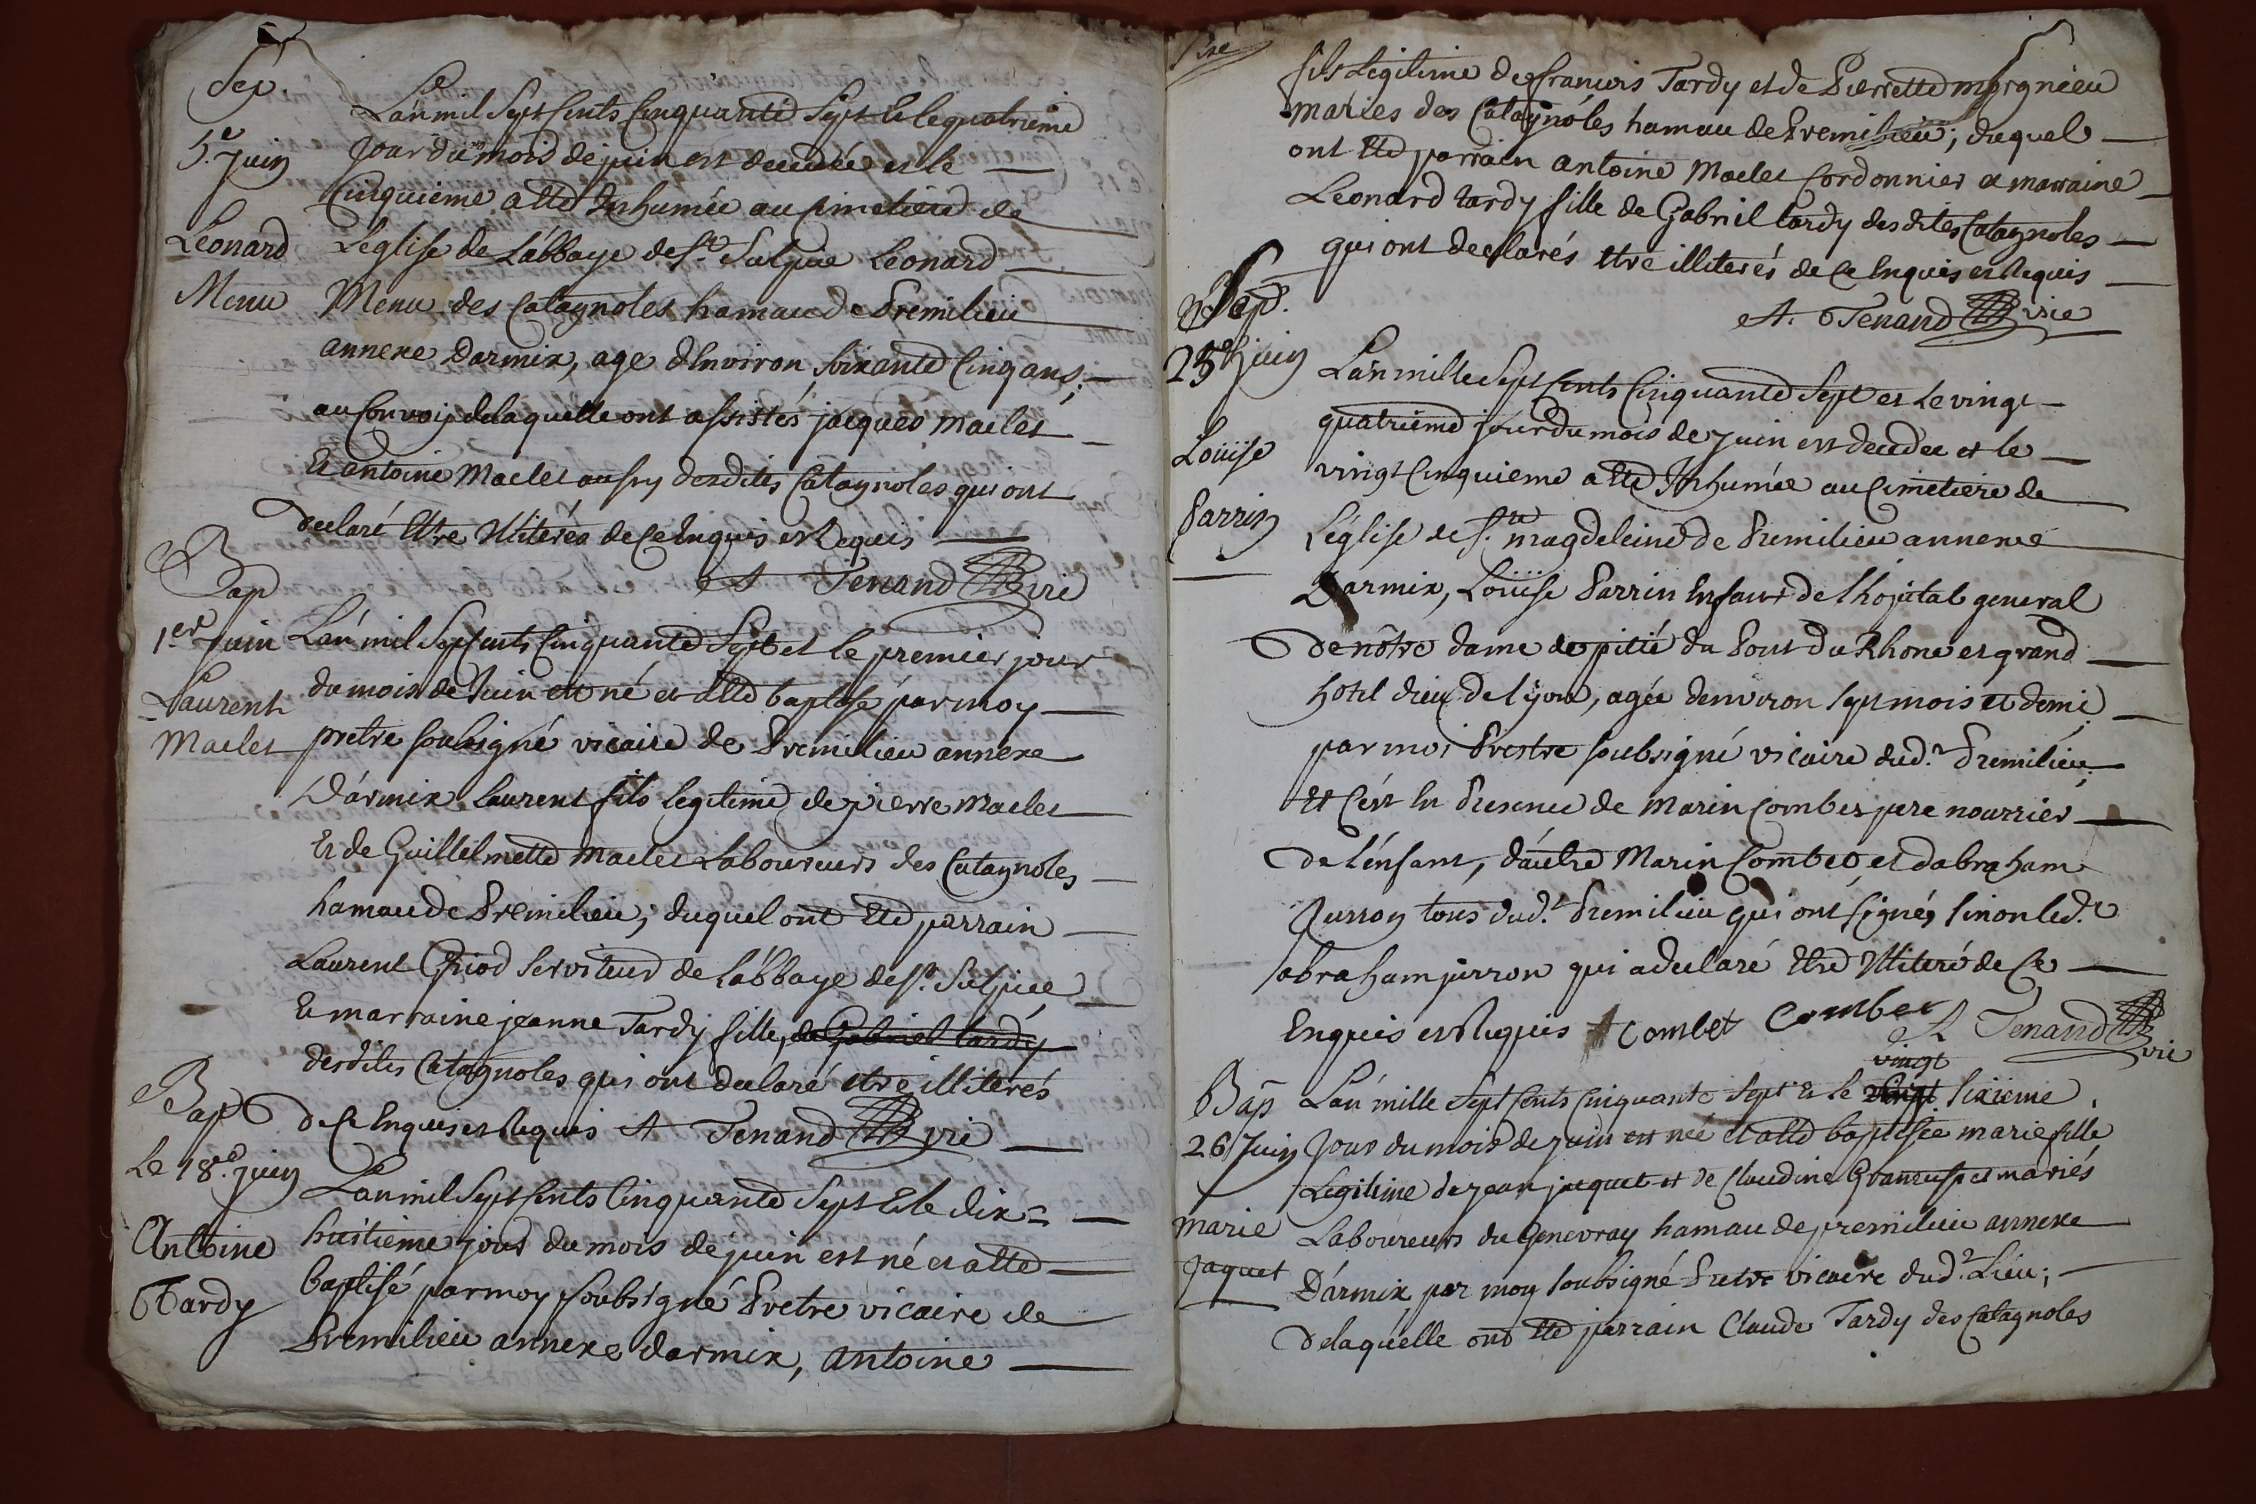 Sep.
5.e Juin
Leonard
Menu
L'an mil Sept Cents Cinquante Sept et le quatrieme
Jour du mois de juin est decedée et le
Cinquieme a eté Inhumée au Cimetiere de
L'eglise de L'abbaye de St. Sulpice Leonard
Menu des Catagnoles hamau de Premilieu
annexe Darmix, age d'Environ, soixante Cinq ans,
au Convoy de laquelle ont assistés jacques Maclet
Et antoine Maclet aussy desdites Catagnoles qui ont
declaré Etre Illiterés de Ce Enquis et Requis
A Tenand vic
Bap
1er Juin
Laurent
Maclet
L'an mil Sept cents Cinquante Sept et le premier jour
du mois de Juin est né et a eté baptisé par moy
pretre soubsigné vicaire de Premilieu annexe
D'armix Laurent fils legitime de pierre Maclet
Et de Guillelmette Maclet Laboureurs des Catagnoles
hamau de Premilieu; duquel ont Eté parrain
Laurent serviteur de L'abbaye de St. Sulpice
Et marraine jeanne Tardy fille, de Gabriel tardy
desdites Catagnoles qui ont declaré etre illiterés
de Ce Enquis et Requis A Tenand vic
Bapt
Le 18.e juin
Antoine
Tardy
L'an mil Sept Cents Cinquante Sept Et le dix=
huitieme jour du mois de juin est né et a eté
baptisé par moy soubsigné Pretre vicaire de
Premilieu annexe darmix, antoine
fils Legitime de francois Tardy et de Pierrette morgnieu
mariés des Catagnoles hamau de Premilieu; duquel
ont Eté parrain antoine Maclet Cordonnier et marraine
Leonard tardy fille de Gabriel tardy desdites Catagnoles
qui ont declarés etre illiterés de Ce Enquis et Requis
A. Tenand vic
Sep.
25e juin
Louïse
Parrin
L'an mille Sept Cents Cinquante Sept et Le vingt
quatrieme jour du mois de juin est decedée et le
vingt Cinquieme a eté Inhumée au Cimetiere de
L'église de Ste magdeleine de Premilieu annexe
Darmix, Louïse Parrin Enfant de l'hopital general
De nôtre dame de pitié du Pont du Rhone et grand
hôtel dieu de lyon, agée denviron sept mois et demi
par moi Prestre soubsigné vicaire dud.t Premilieu
Et C'est En Presence de Marin Combet pere nourrier
de L'enfant, d'autre Marin Combet, et dabraham
Jurron tous dud.t Premilieu qui ont signés sinon led.t
abraham jurron qui a declaré Etre Illiteré de Ce
Enquis et Requis Combet Combet A Tenand vic
Bap
26 Juin
marie
Jaquet
vingt
L'an mille Sept Cents Cinquante Sept Et le vingt sixieme
Jour du mois de juin est née et a eté baptisée marie fille
Legitime de jean jaquet et de Claudine mariés
Laboureurs du Genevray hamau de premilieu annexe
D'armix par moy soubsigné Pretre vicaire dud.t Lieu;
De laquelle ont Eté parrain Claude Tardy des Catagnoles